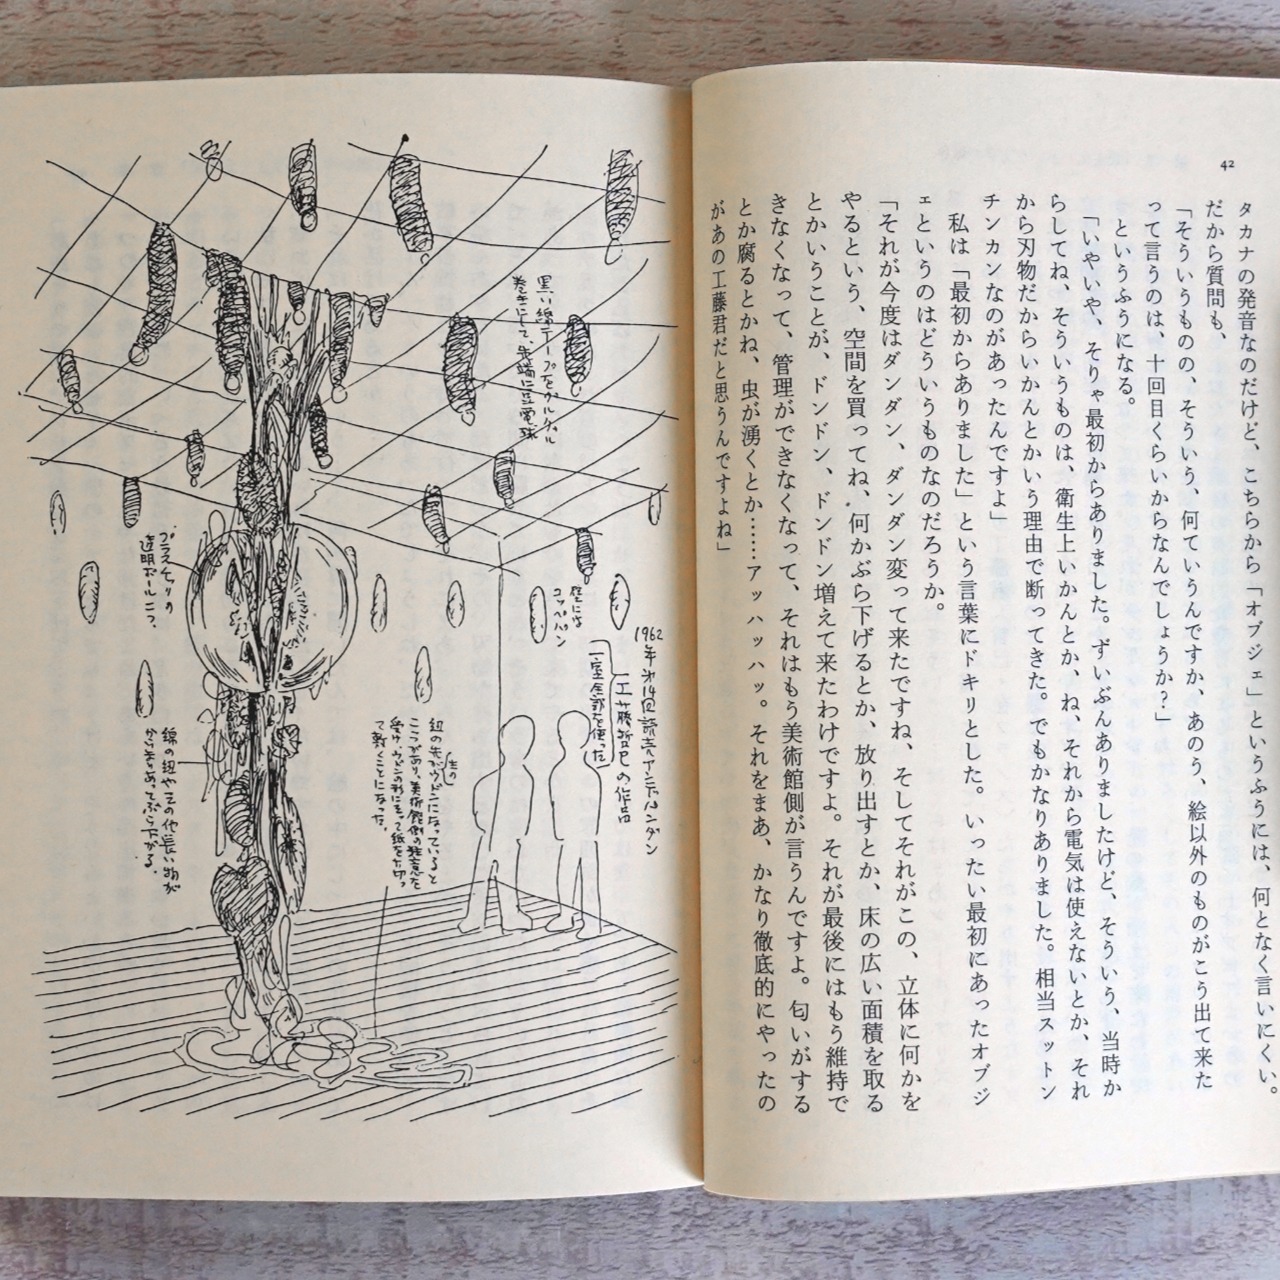 42
タカナの発音なのだけど、こちらから「オブジェ」というふうには、何となく言いにくい。
だから質問も、
「そういうものの、そういう、何ていうんですか、あのう、絵以外のものがこう出て来た
って言うのは、十回目くらいからなんでしょうか?」
というふうになる。
「いやいや、そりゃ最初からありました。ずいぶんありましたけど、そういう、当時か
らしてね、そういうものは、衛生上いかんとか、ね、それから電気は使えないとか、それ
から刃物だからいかんとかいう理由で断ってきた。でもかなりありました。相当スットン
チンカンなのがあったんですよ」
私は「最初からありました」という言葉にドキリとした。いったい最初にあったオブジ
ェというのはどういうものなのだろうか。
「それが今度はダンダン、ダンダン変って来たですね、そしてそれがこの、立体に何かを
やるという、空間を買ってね、何かぶら下げるとか、放り出すとか、床の広い面積を取る
とかいうことが、ドンドン、ドンドン増えて来たわけですよ。それが最後にはもう維持で
きなくなって、管理ができなくなって、それはもう美術館側が言うんですよ。匂いがする
とか腐るとかね、虫が湧くとか……アッハッハッ。それをまあ、かなり徹底的にやったの
があの工藤君だと思うんですよね」
1962年第14回読売アンデパンダン
工藤哲巳の作品
一室全部を使った
壁には
コッペパン
黒い綿テープをグルグル
巻きにして、先端に豆電球
プラスチックの
透明ボール二つ。
紐の先が(生の)ウドンになっていると
ころがあり、美術館側の注意を
受け、ウドンの形にそって紙を切っ
て敷くことになった。
綿の紐やその他長い物が
からまりあってぶら下がる。